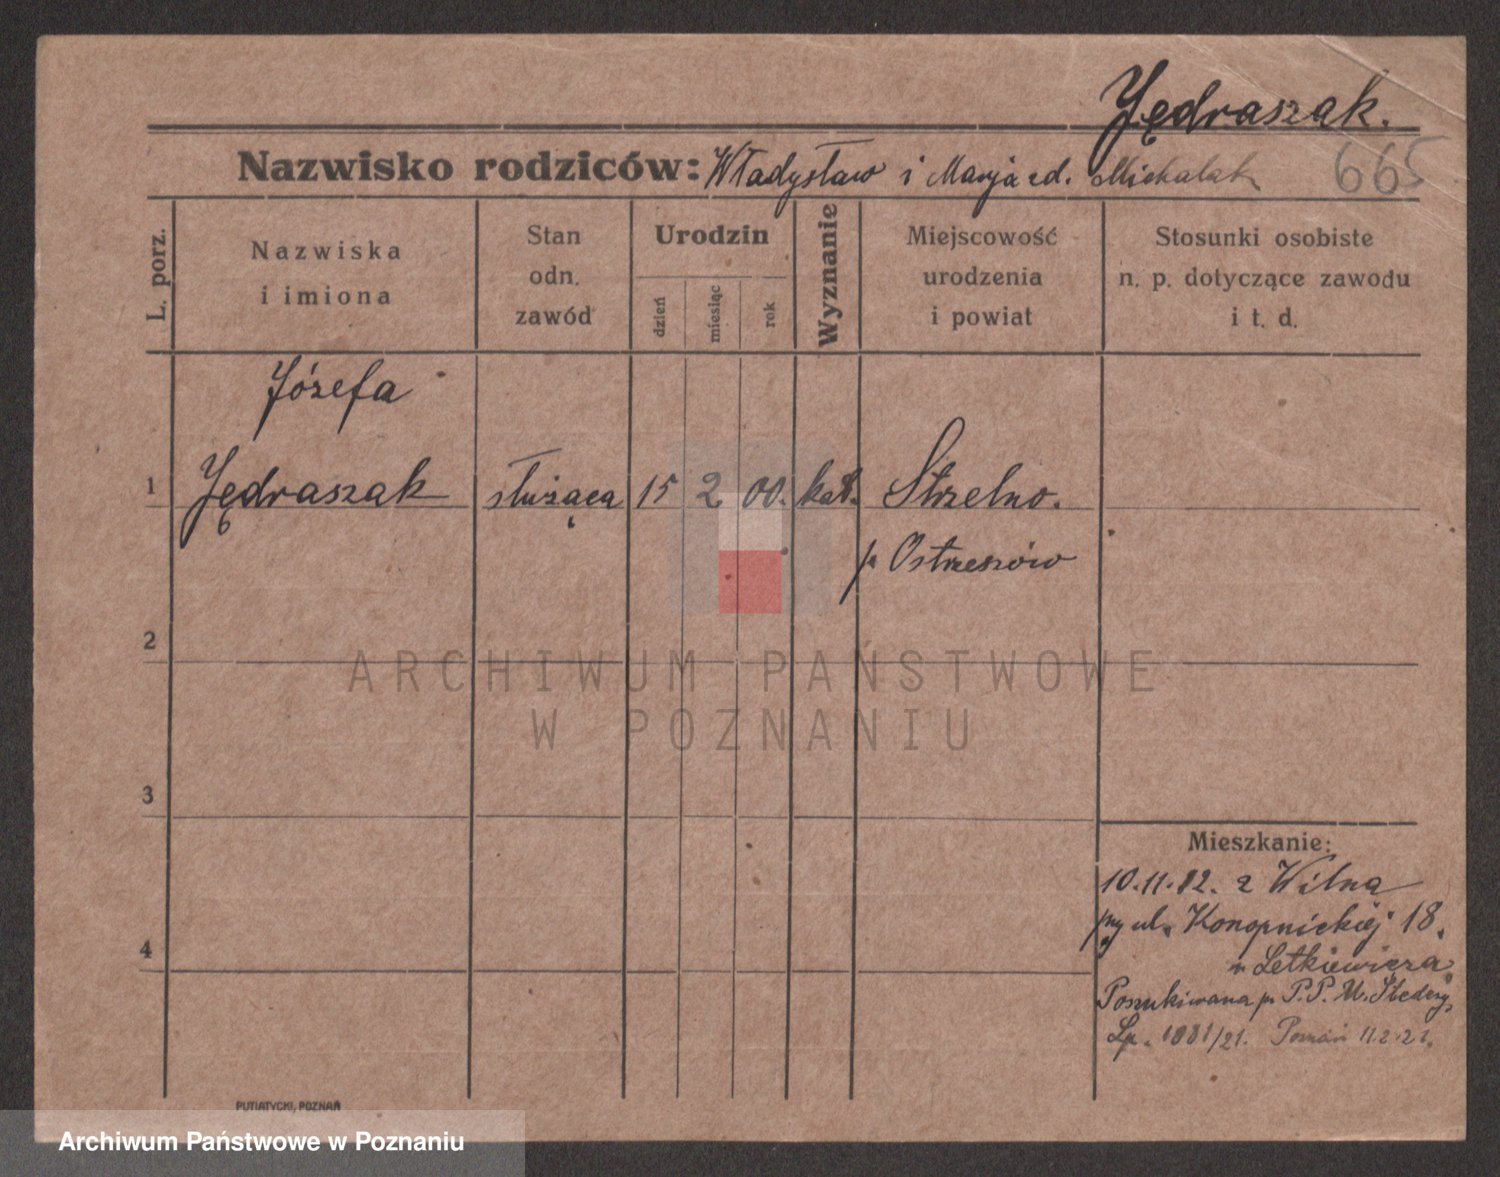 Jędraszak.
Nazwisko rodziców: Władysław i Marja zd. Michalak
665
L. porz.
Nazwiska
i imiona
Stan
odn.
zawód
Urodzin
dzień
miesiąc
rok
Wyznanie
Miejscowość
urodzenia
i powiat
Stosunki osobiste
n. p. dotyczące zawodu
i t. d.
Józefa
1 Jędraszak służąca 15 2 00. kat. Strzelno.
p. Ostrzeszów
2
ARCHIWUM PAŃSTWOWE
W POZNANIU
3
Mieszkanie:
10.11. z Wilna
ul. Konopnickiej 18.
Letkiewicza
Poszukiwana p. P.P. U. Śledczy
Lp. 1881/21. Poznań 11.2.21.
4
PUTIATYCKI, POZNAŃ
Archiwum Państwowe w Poznaniu